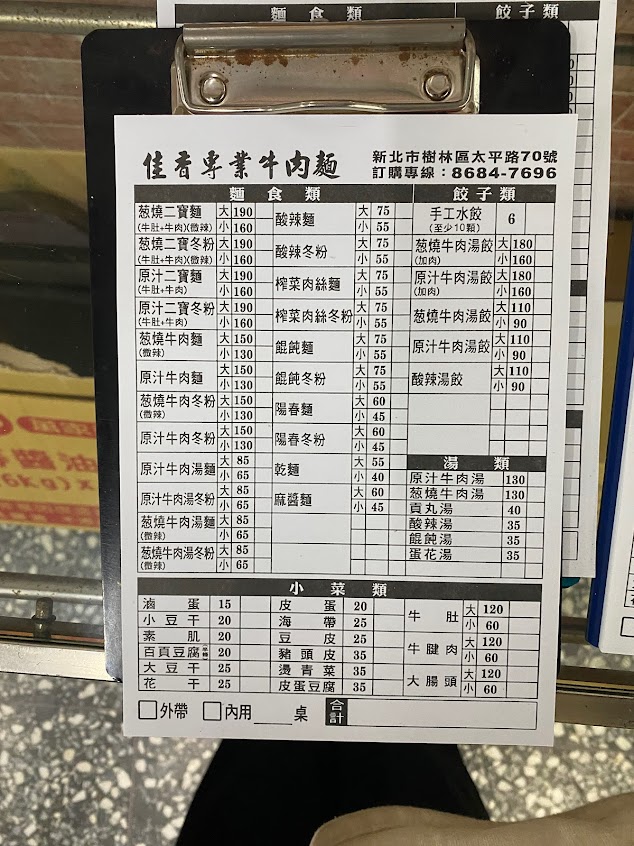 麵食類 餃子類
佳香專業牛肉麵
新北市樹林區太平路70號
訂購專線：8684-7696
麵食類
葱燒二寶麵 大 190
(牛肚+牛肉)(微辣) 小 160
葱燒二寶冬粉 大 190
(牛肚+牛肉)(微辣) 小 160
原汁二寶麵 大 190
(牛肚+牛肉) 小 160
原汁二寶冬粉 大 190
(牛肚+牛肉) 小 160
葱燒牛肉麵 大 150
(微辣) 小 130
原汁牛肉麵 大 150
小 130
葱燒牛肉冬粉 大 150
(微辣) 小 130
原汁牛肉冬粉 大 150
小 130
原汁牛肉湯麵 大 85
小 65
原汁牛肉湯冬粉 大 85
小 65
葱燒牛肉湯麵 大 85
(微辣) 小 65
葱燒牛肉湯冬粉 大 85
(微辣) 小 65
酸辣麵 大 75
小 55
酸辣冬粉 大 75
小 55
榨菜肉絲麵 大 75
小 55
榨菜肉絲冬粉 大 75
小 55
餛飩麵 大 75
小 55
餛飩冬粉 大 75
小 55
陽春麵 大 60
小 45
陽春冬粉 大 60
小 45
乾麵 大 55
小 40
麻醬麵 大 60
小 45
餃子類
手工水餃 6
(至少10顆)
葱燒牛肉湯餃 大 180
(加肉) 小 160
原汁牛肉湯餃 大 180
(加肉) 小 160
葱燒牛肉湯餃 大 110
小 90
原汁牛肉湯餃 大 110
小 90
酸辣湯餃 大 110
小 90
湯類
原汁牛肉湯 130
葱燒牛肉湯 130
貢丸湯 40
酸辣湯 35
餛飩湯 35
蛋花湯 35
小菜類
滷蛋 15
小豆干 20
素肌 20
百頁豆腐 20
大豆干 25
花干 25
皮蛋 20
海帶 25
豆皮 25
豬頭皮 35
燙青菜 35
皮蛋豆腐 35
牛肚 大 120
小 60
牛腱肉 大 120
小 60
大腸頭 大 120
小 60
外帶 內用 桌 合計
醬油
6kg)x